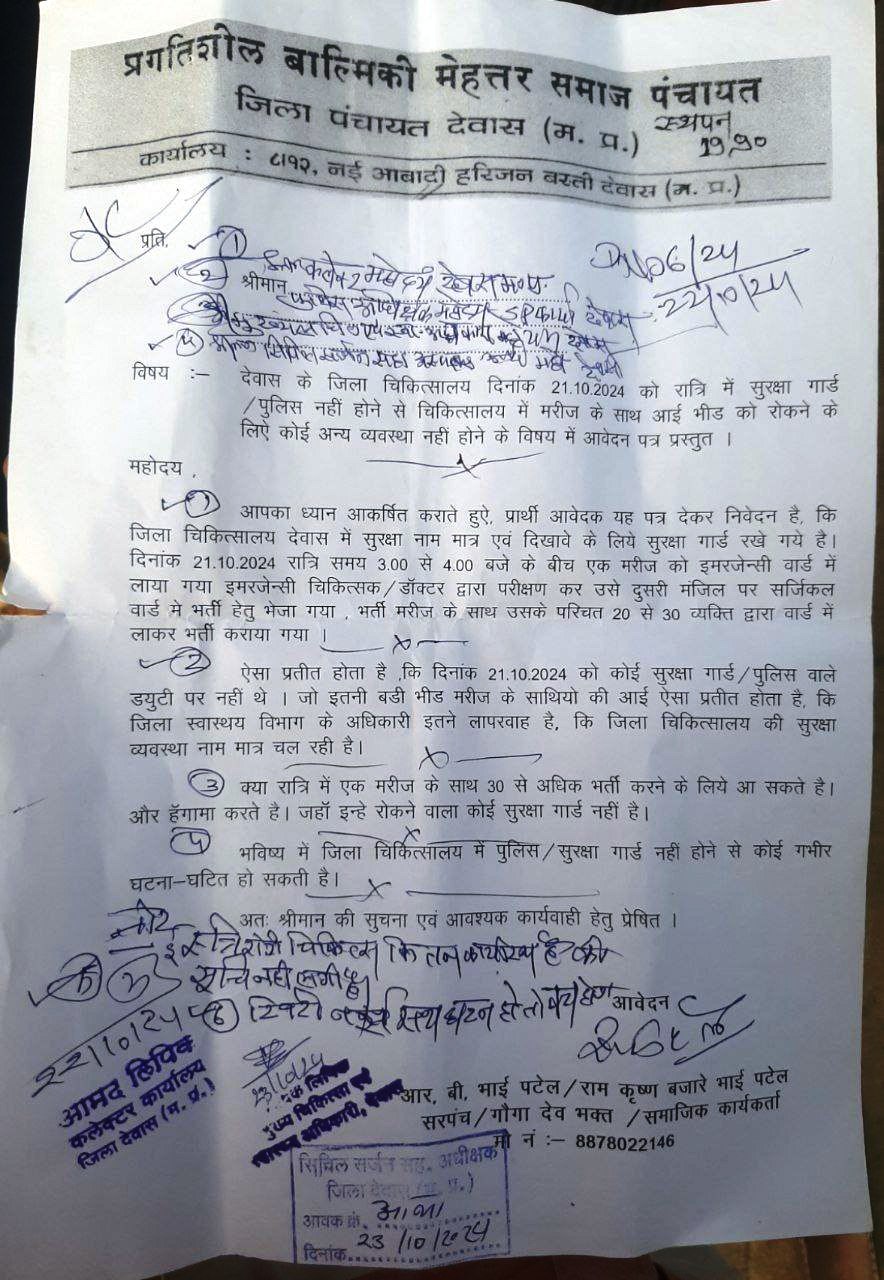 प्रगतिशील बाल्मिकी मेहत्तर समाज पंचायत
जिला पंचायत देवास (म. प्र.) स्थपन
19,90
कार्यालय : ८/१२, नई आबादी हरिजन बस्ती देवास (म. प्र.)
प्रति, 1
06/24
22/10/24
2 श्रीमान
विषय :– देवास के जिला चिकित्सालय दिनांक 21.10.2024 को रात्रि में सुरक्षा गार्ड
/पुलिस नहीं होने से चिकित्सालय में मरीज के साथ आई भीड को रोकने के
लिऐ कोई अन्य व्यवस्था नहीं होने के विषय में आवेदन पत्र प्रस्तुत ।
महोदय ,
1 आपका ध्यान आकर्षित कराते हुऐ, प्रार्थी आवेदक यह पत्र देकर निवेदन है, कि
जिला चिकित्सालय देवास में सुरक्षा नाम मात्र एवं दिखावे के लिये सुरक्षा गार्ड रखे गये है।
दिनांक 21.10.2024 रात्रि समय 3.00 से 4.00 बजे के बीच एक मरीज को इमरजेन्सी वार्ड में
लाया गया इमरजेन्सी चिकित्सक/डॉक्टर द्वारा परीक्षण कर उसे दुसरी मंजिल पर सर्जिकल
वार्ड मे भर्ती हेतु भेजा गया , भर्ती मरीज के साथ उसके परिचत 20 से 30 व्यक्ति द्वारा वार्ड में
लाकर भर्ती कराया गया ।
2 ऐसा प्रतीत होता है ,कि दिनांक 21.10.2024 को कोई सुरक्षा गार्ड/पुलिस वाले
डयुटी पर नहीं थे । जो इतनी बडी भीड मरीज के साथियो की आई ऐसा प्रतीत होता है, कि
जिला स्वास्थय विभाग के अधिकारी इतने लापरवाह है, कि जिला चिकित्सालय की सुरक्षा
व्यवस्था नाम मात्र चल रही है।
3 क्या रात्रि में एक मरीज के साथ 30 से अधिक भर्ती करने के लिये आ सकते है।
और हॅगामा करते है। जहॉ इन्हे रोकने वाला कोई सुरक्षा गार्ड नहीं है।
4 भविष्य में जिला चिकित्सालय में पुलिस/सुरक्षा गार्ड नहीं होने से कोई गभीर
घटना–घटित हो सकती है।
अतः श्रीमान की सुचना एवं आवश्यक कार्यवाही हेतु प्रेषित ।
नोट
सुचि नही लगी है
22/10/24
आवेदन
आमद लिपिक
कलेक्टर कार्यालय
जिला देवास (म. प्र.)
लिपिक
मुख्य चिकित्सा एवं
स्वास्थ्य अधिकारी, देवास
आर, बी, भाई पटेल/राम कृष्ण बजारे भाई पटेल
सरपंच/गौगा देव भक्त /समाजिक कार्यकर्ता
मो नं :– 8878022146
सिविल सर्जन सह. अधीक्षक
जिला देवास (म. प्र.)
आवक क्रं.
दिनांक 23/10/2024